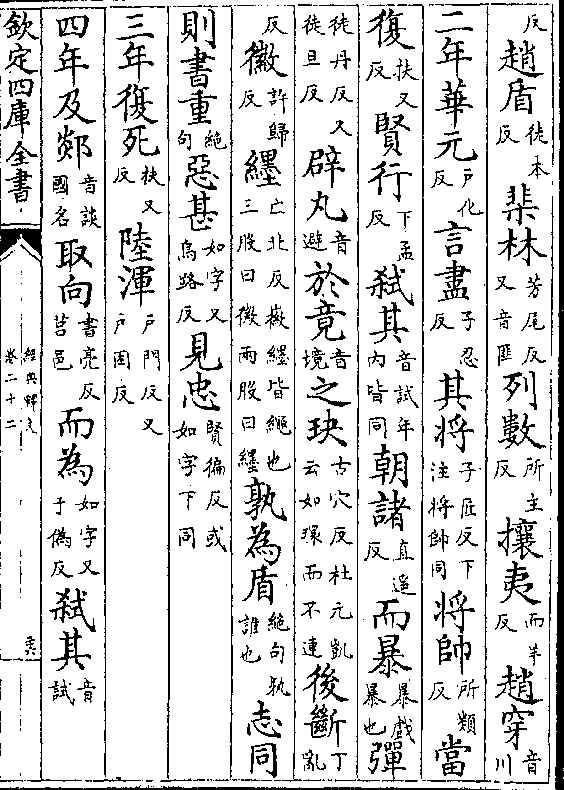 反趙盾徒本反棐林芳尾反又音匪列數所主反攘夷而羊反趙穿音川
二年華元戶化反言盡子忍反其將子匠反下注將帥同將帥所類反當
復扶又反賢行下孟反弑其音試年內皆同朝諸直遥反而暴暴戲暴也彈
徒丹反又徒旦反辟丸音避於竟音境之玦古穴反杜元凱云如環而不連後斷丁亂
反徽許歸反纆亡北反徽纆皆繩也三股曰徽兩股曰纆孰為盾絶句孰誰也志同
則書重絶句惡甚如字又烏路反見忠賢徧反或如字下同
三年復死扶又反陸渾戶門反又戶困反
四年及郯音談國名取向書亮反莒邑而為如字又于偽反弑其音試
欽定四庫全書
經典釋文
卷二十二